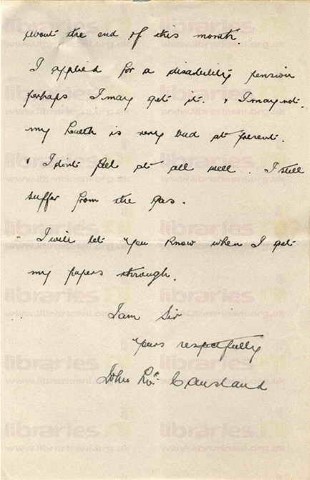 about the end of this month.
I applied for a disability pension
perhaps I may get it. & I may not.
my health is very bad at present.
& I dont feel at all well. I still
suffer from the gas.
I will let you know when I get
my papers through.
I am Sir
yours respectfully
John Mc Causland